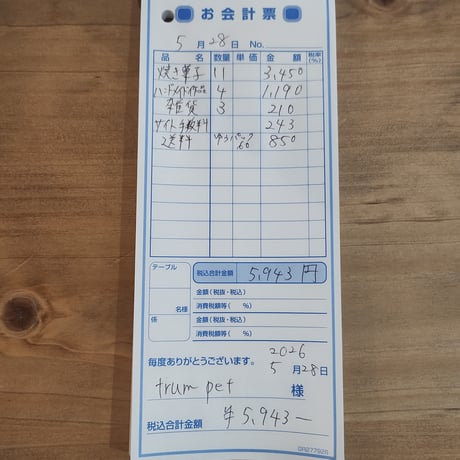 お会計票
5月28日 No.
品名 数量 単価 金額 税率(%)
焼き菓子 11 3,450
ハンドメイド作品 4 1,190
雑貨 3 210
サイト手数料 243
送料 ゆうパック60 850
テーブル
税込合計金額 5,943円
金額(税抜・税込)
名様 消費税額等( %)
係 金額(税抜・税込)
消費税額等( %)
2026
毎度ありがとうございます。 5月28日
trumpet 様
税込合計金額 ¥5,943—